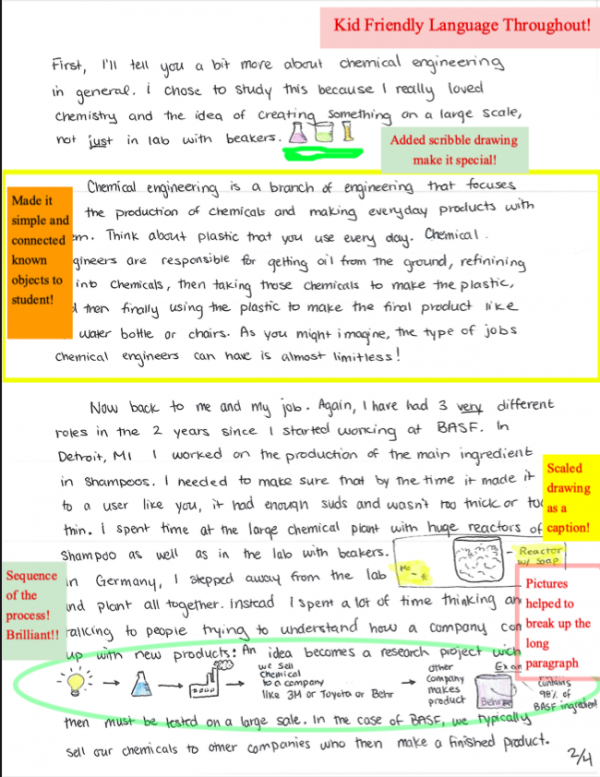 Kid Friendly Language Throughout!
First, I'll tell you a bit more about chemical engineering
in general. i chose to study this because I really loved
chemistry and the idea of creating something on a large scale,
not just in lab with beakers.
Added scribble drawing
make it special!
Made it
simple and
connected
known
objects to
student!
Chemical engineering is a branch of engineering that focuses
the production of chemicals and making everyday products with
em. Think about plastic that you use every day. Chemical
gineers are responsible for getting oil from the ground, refinining
into chemicals, then taking those chemicals to make the plastic,
then finally using the plastic to make the final product like
water bottle or chairs. As you might imagine, the type of jobs
chemical engineers can have is almost limitless!
Now back to me and my job. Again, I have had 3 very different
roles in the 2 years since I started working at BASF. In
Detroit, MI I worked on the production of the main ingredient
in shampoos. I needed to make sure that by the time it made it
to a user like you, it had enough suds and wasn't too thick or too
thin. i spent time at the large chemical plant with huge reactors of
shampoo as well as in the lab with beakers.
Scaled
drawing
as a
caption!
Me
Reactor
w/ soap
Sequence
of the
process!
Brilliant!!
in Germany, I stepped away from the lab
nd plant all together. instead I spent a lot of time thinking an
talking to people trying to understand how a company can
up with new products! An idea becomes a research project wich
Pictures
helped to
break up the
long
paragraph
we sell
chemical
to a company
like 3M or Toyota or Behr
other
company
makes
product
Exa
Behr
contains
98% of
BASF ingredient
then must be tested on a large sale. In the case of BASF, we typically
sell our chemicals to other companies who then make a finished product.
2/4